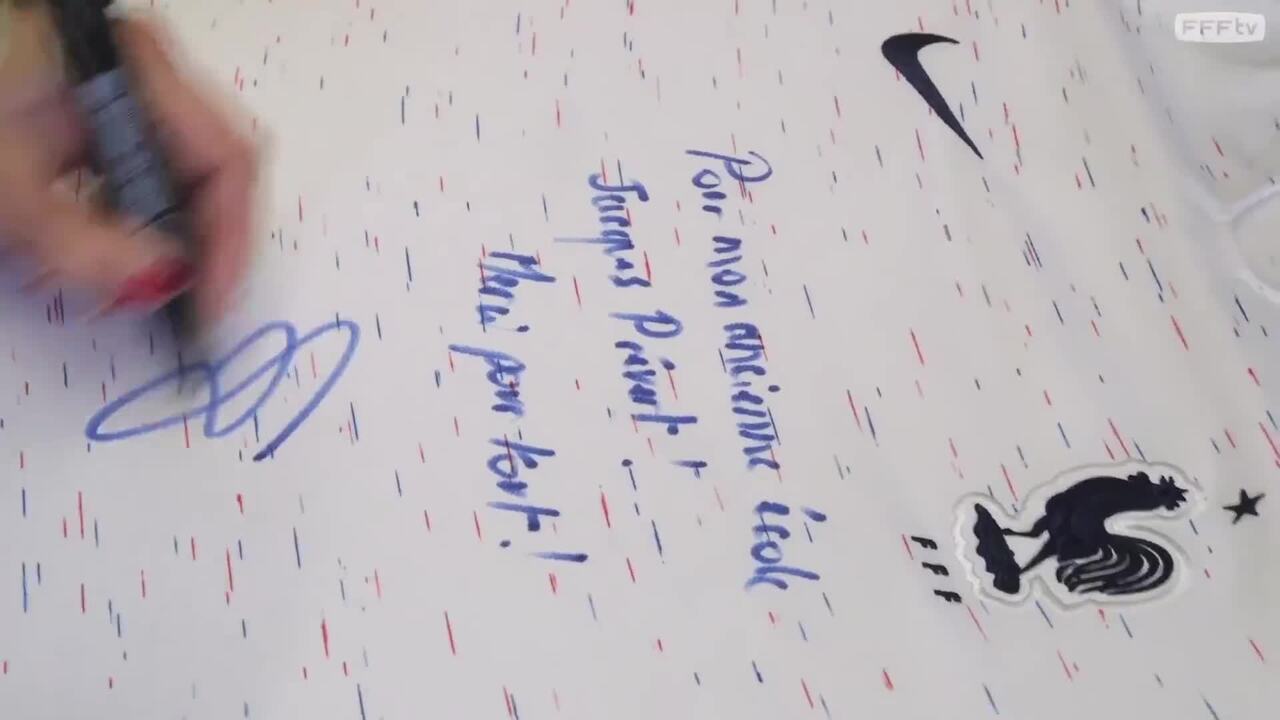 FFFtv
Pour mon ancienne école
Jacques Prévert !
Merci pour tout !
FFF